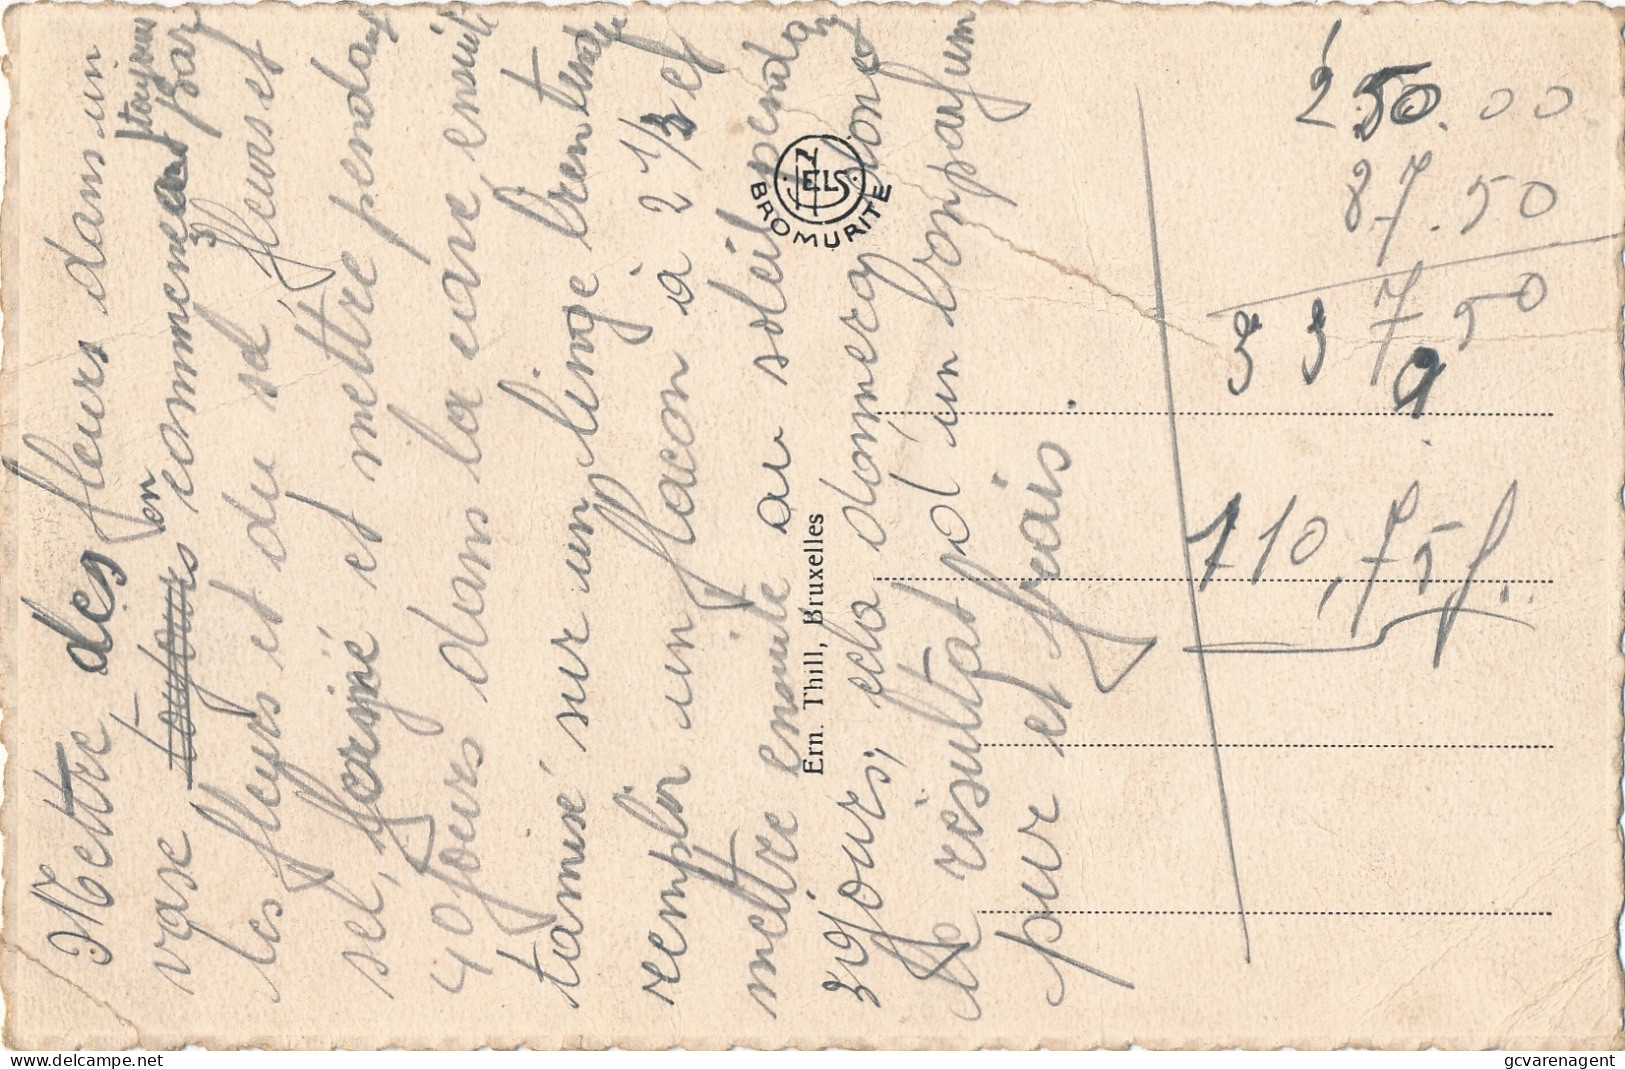 Mettre des fleurs dans un
vase ~~toujours~~ en commenceant toujours par
les fleurs et du sel, fleurs et
sel, et mettre pendant
40 jours dans la cave ensuite
tamisé sur un linge bien tendu
remplir un flacon à 2 1/3 et
mettre ensuite au soleil pendan
30 jours, cela donnera donc
le résultat d'un bon parfum
pur et frais
NELS
BROMURITE
Ern. Thill, Bruxelles
250.00
87.50
337.50
9
110,75 f.
delcampe.net
gcvarenagent